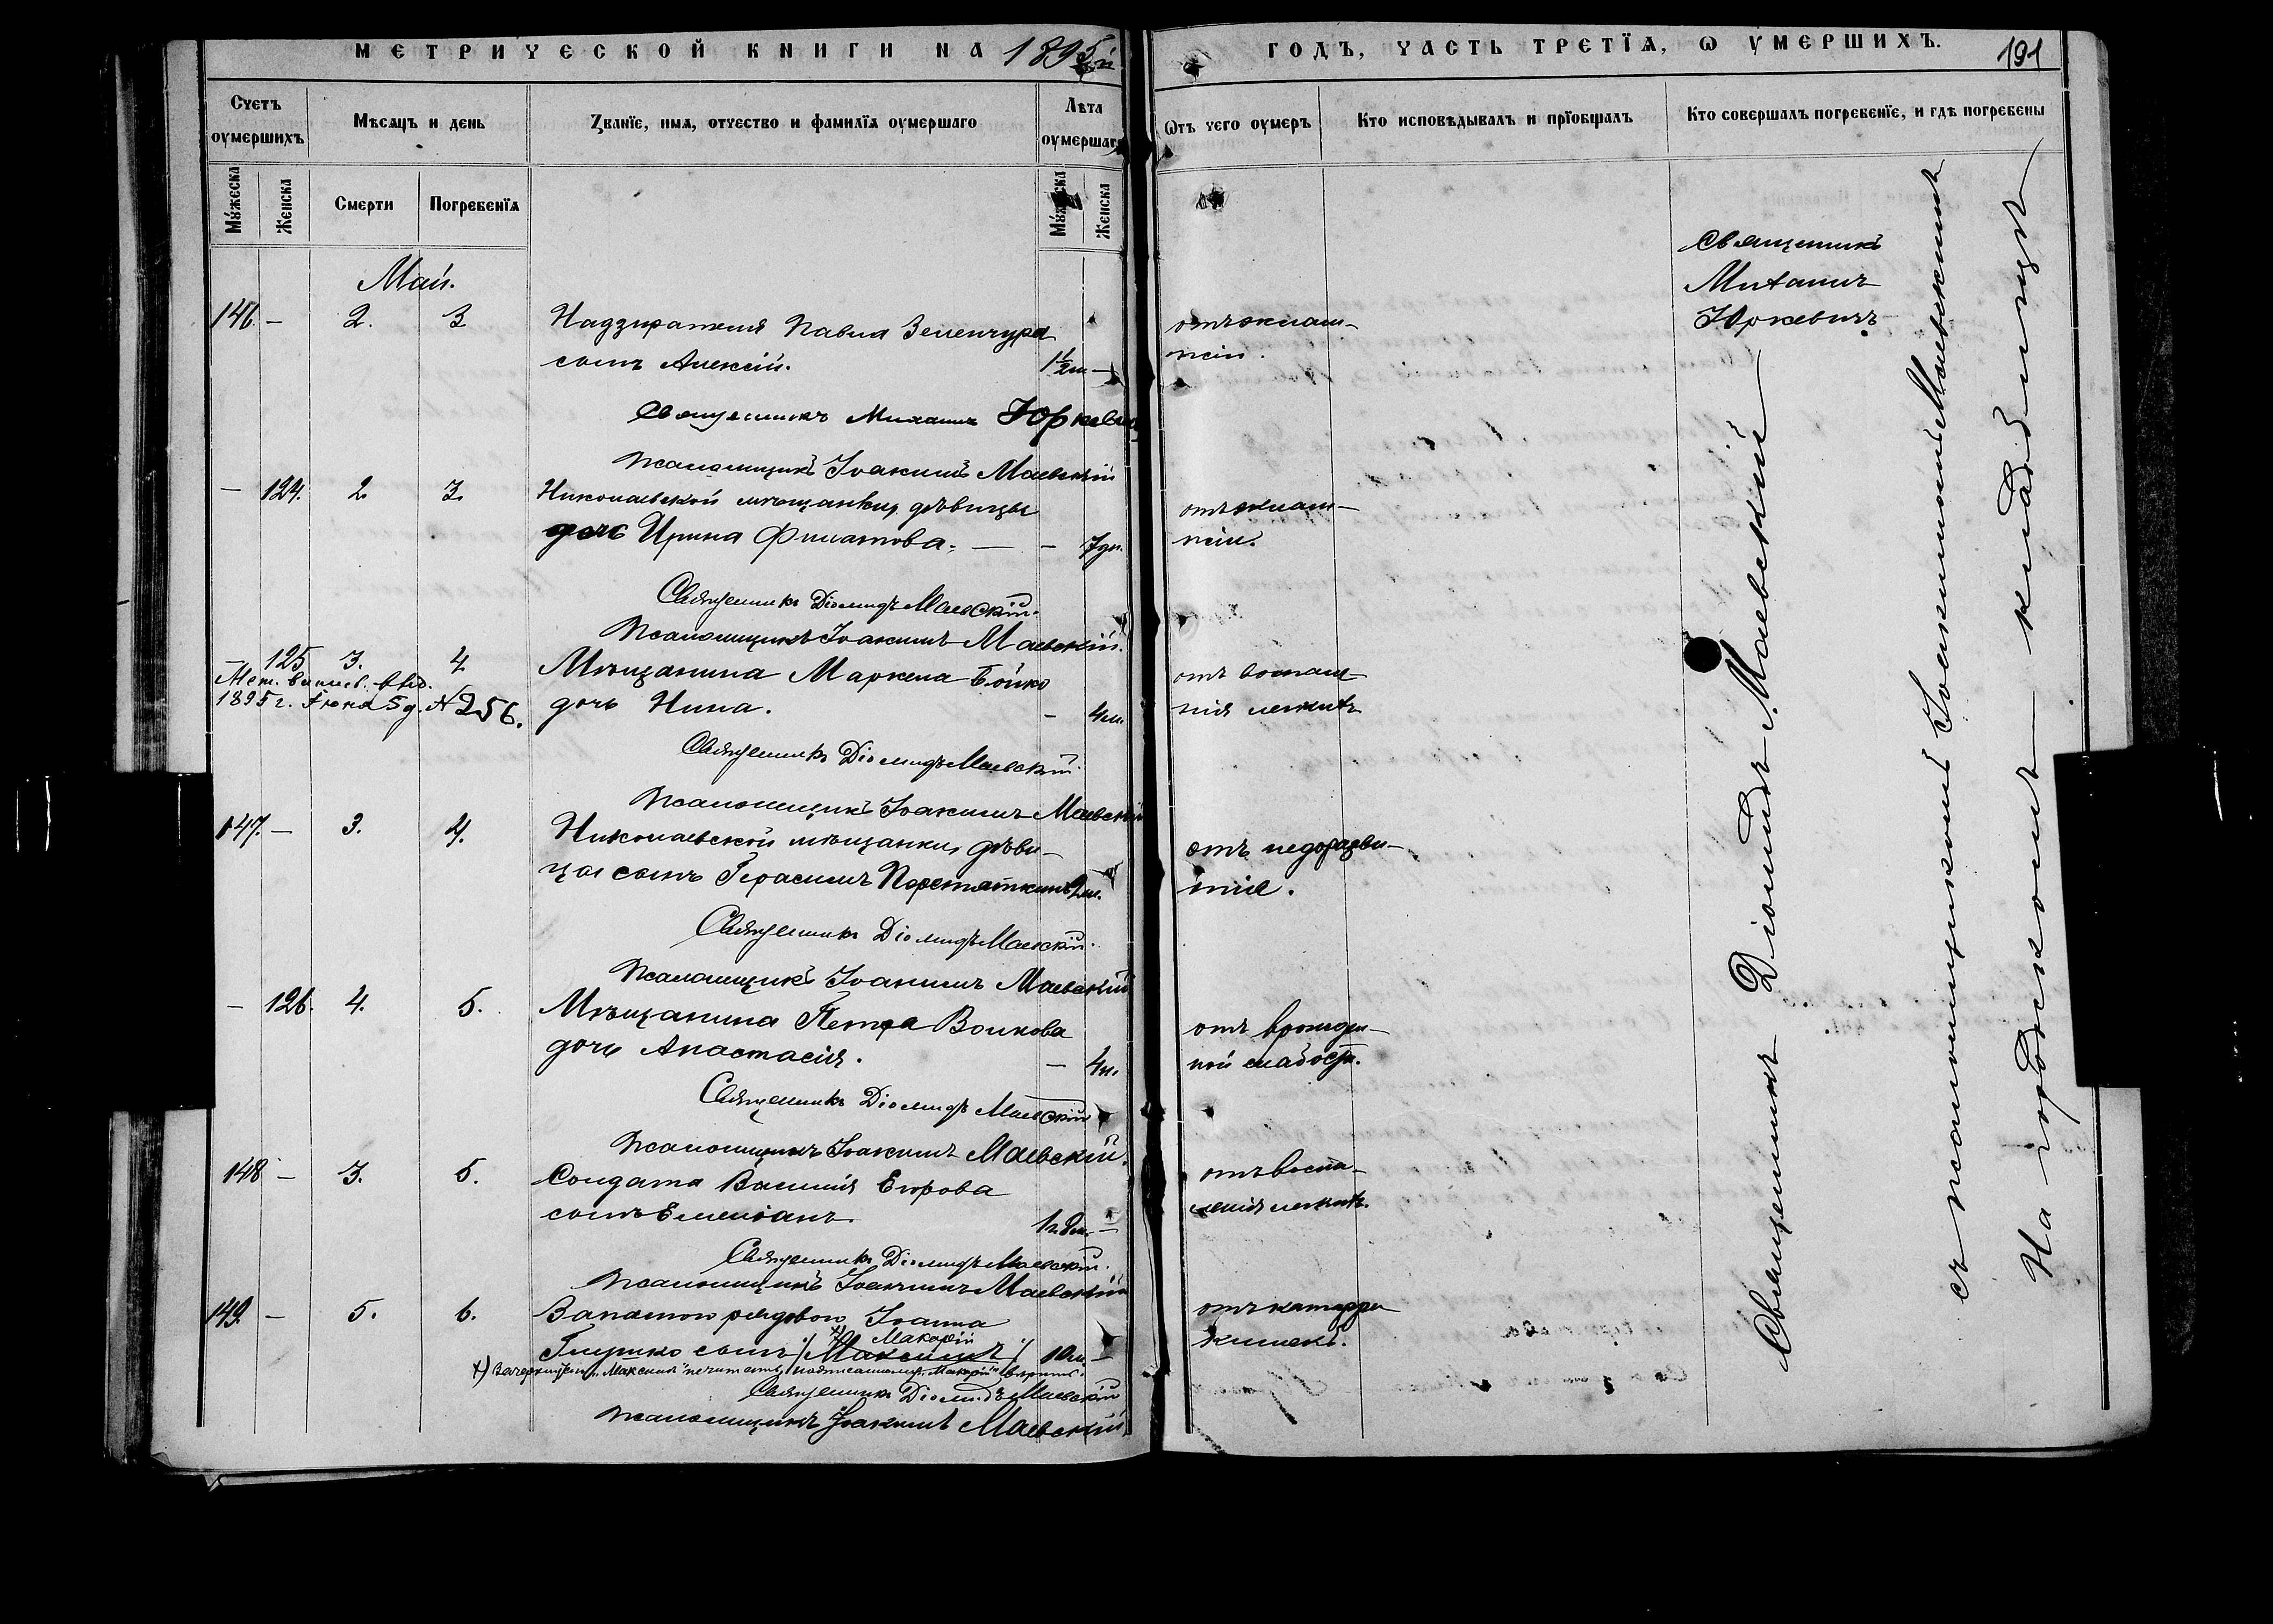 МЕТРИЧЕСКОЙ КНИГИ НА 1895й
ГОДЪ, ЧАСТЬ ТРЕТІѦ, Ѡ УМЕРШИХЪ.
191
Счетъ оумершихъ
Мѣсяцъ и день
Званїе, имѧ, отчество и фамилїѧ оумершаго
Лѣта оумершаго
Ѿтъ чего оумеръ
Кто исповѣдывалъ и прїобщалъ
Кто совершалъ погребенїе, и гдѣ погребены
Мꙋжеска
Женска
Смерти
Погребенїѧ
Мꙋжеска
Женска
Май.
146. — 2. 3
Надзирателя Павла Зеленчура
сынъ Алексій. 1½ м —
отъ эклам-
псіи.
Священникъ
Михаилъ
Юркевичъ
Священникъ Михаилъ Юркевич
Псаломщикъ Іоакимъ Маевскій
— 124. 2. 3.
Николаевской мѣщанки, дѣвицы
дочь Ирина Филатова. — — 7 дн.
отъ эклам-
псіи.
Священникъ Діомидъ Маевскій.
Псаломщикъ Іоакимъ Маевскій.
— 125 3. 4
Мет. выпись выд.
1895 г. Іюня 5 д. № 256.
Мѣщанина Маркела Бойко
дочь Нина. — 4 м.
отъ воспале-
нія легкихъ
Священникъ Діомидъ Маевскій
Псаломщикъ Іоакимъ Маевскій
147. — 3. 4.
Николаевской мѣщанки, дѣви-
цы сынъ Герасимъ 2 м.
отъ недоразви-
тія.
Священникъ Діомидъ Маевскій.
Псаломщикъ Іоакимъ Маевскій
— 126. 4. 5.
Мѣщанина Петра Волкова
дочь Анастасія. — 4 н.
отъ врожден-
ной слабости.
Священникъ Діомидъ Маевскій
Псаломщикъ Іоакимъ Маевскій.
148 — 3. 5.
Солдата Василія Егорова
сынъ Емеліанъ. 1 г. 8 м. —
отъ воспа-
ленія легкихъ.
Священникъ Діомидъ Маевскій.
Псаломщикъ Іоакимъ Маевскій
149. — 5. 6.
рядовой Іоанна
×) Макарій
Глушко сынъ /Максимъ/ 10 м. —
отъ катарра
кишекъ.
×) Зачеркнутаго „Максимъ" не читать, надписанному „Макарій" вѣрить.
Священникъ Діомидъ Маевскій
Псаломщикъ Іоакимъ Маевскій
Священникъ Діомидъ Маевскій
съ псаломщикомъ Іоакимомъ Маевскимъ
На градскомъ кладбищѣ